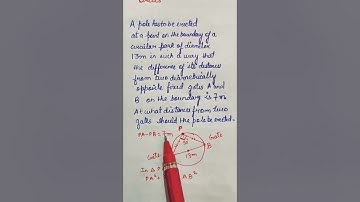 A pole has to be erected
at a point on the boundary of a
circular park of diameter
13m in such a way that
the difference of its distance
from two diametrically
opposite fixed gates A and
B on the boundary is 7m
At what distances from two
gates should the pole be erected.
PA-PB = 7m
P
Gate
90
B
13m
Gate
In Δ P
PA² AB²